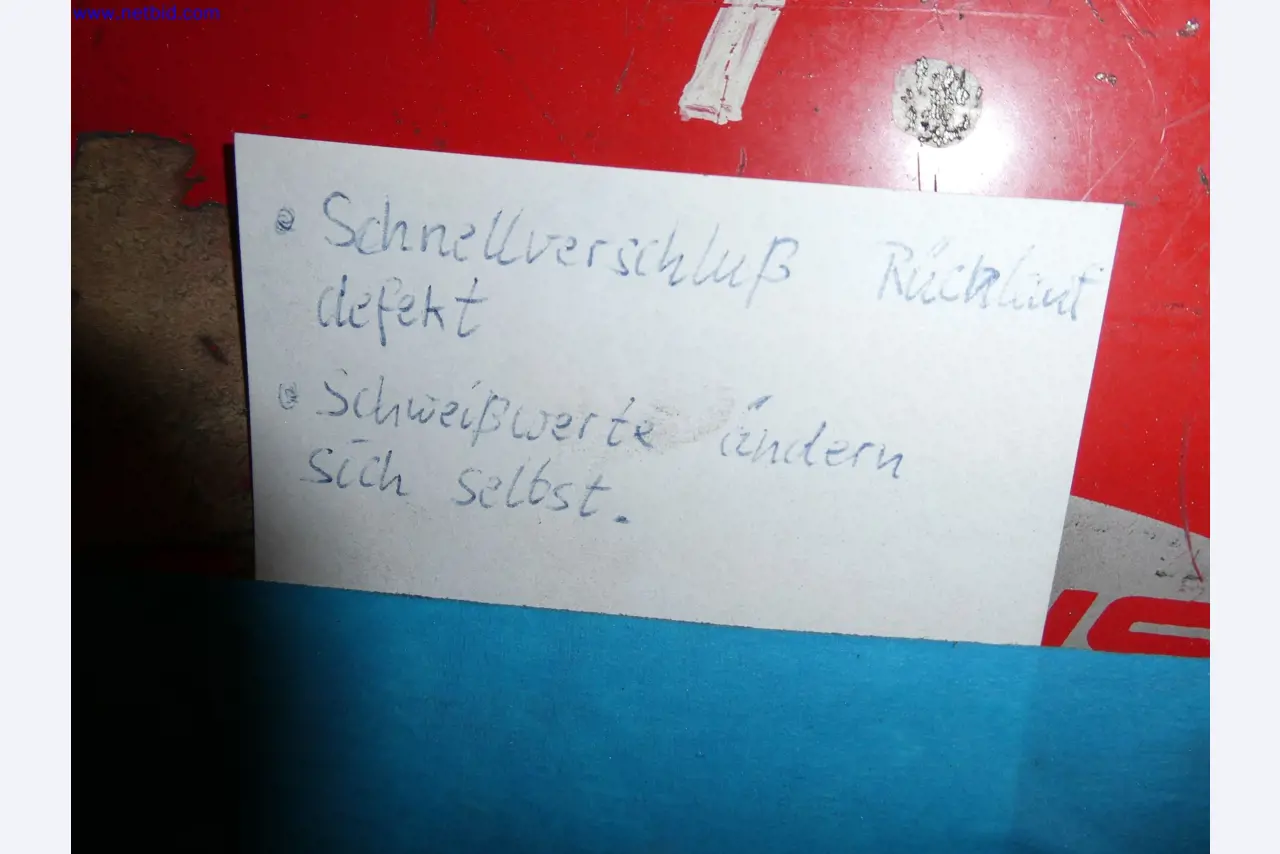 www.netbid.com
• Schnellverschluß Rücklauf
defekt
• Schweißwerte ändern
sich selbst.